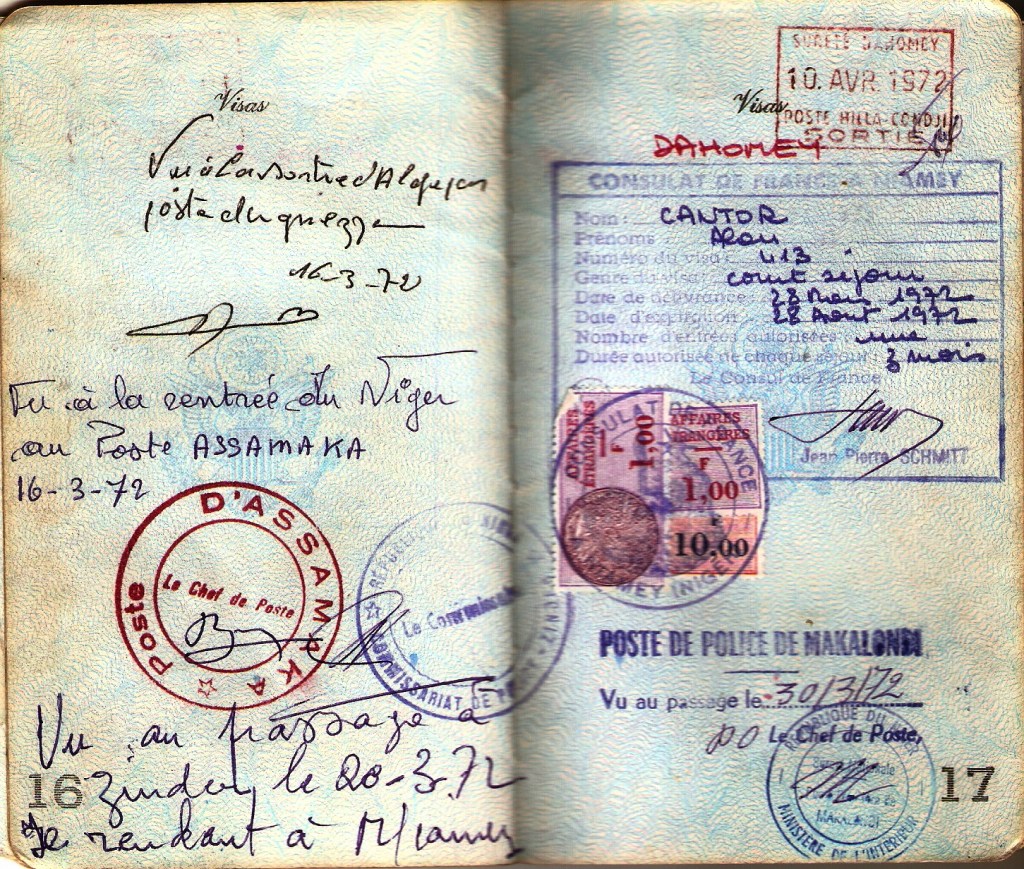 Visas
Vu à la sortie d'Algérie
poste d'In guezzam
16-3-72
Vu à la rentrée du Niger
au Poste ASSAMAKA
16-3-72
POSTE D'ASSAMAKA
Le Chef de Poste
RÉPUBLIQUE DU NIGER
Le Commissaire
COMMISSARIAT DE
Vu au passage à
Zinder le 20-3-72
Se rendant à Niamey
16
Visas
SURETÉ DAHOMEY
10. AVR. 1972
POSTE HILLA-CONDJI
SORTIE
DAHOMEY
CONSULAT DE FRANCE A NIAMEY
Nom: CANTOR
Prénoms: Alan
Numéro du visa: 413
Genre du visa: court séjour
Date de délivrance: 28 Mars 1972
Date d'expiration: 28 Aout 1972
Nombre d'entrées autorisées: une
Durée autorisée de chaque séjour: 3 mois
Le Consul de France
Jean Pierre SCHMITT
CONSULAT DE FRANCE
NIAMEY (NIGER)
AFFAIRES ETRANGÈRES
F
1,00
AFFAIRES
ETRANGÈRES
F
1,00
F
10,00
POSTE DE POLICE DE MAKALONDI
Vu au passage le 30/3/72
po Le Chef de Poste,
REPUBLIQUE DU NIGER
MAKALONDI
MINISTÈRE DE L'INTERIEUR
17